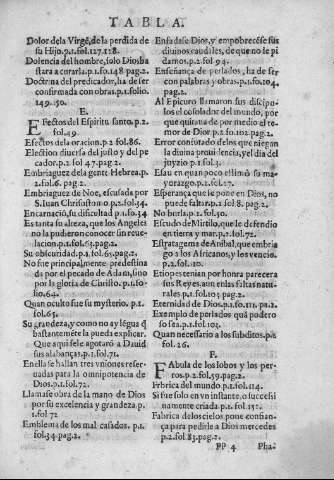 TABLA.
Dolor dela Virgē, de la perdida de
su Hijo. p.1. fol. 127. 128.
Dolencia del hombre, solo Dios bas
tara a curarla. p.1. fo. 148 pag. 2.
Doctrina del predicador, ha de ser
confirmada con obras. p.1. folio.
149. 50.
E.
EFectos del Espiritu santo. p.2.
fol. 49.
Efectos dela oracion. p.2 fol. 86.
Election diuersa del justo y del pe-
cador. p.2 fol 47. pag. 2.
Embriaguez de la gente Hebrea. p.
2. fol. 6. pag. 2.
Embriaguez de Noe, escusada por
S. Iuan Chrisostomo p.2. fol. 34.
Encarnació, su dificultad p.1. fo. 34
Es tanta su alteza, que los Angeles
no la pudieron conocer sin reue-
lacion. p.1. fol. 63. pag. 2.
Su obscuridad. p.1. fol. 65. pag. 2.
No fue principalmente predestina
da por el pecado de Adam, sino por
la gloria de Christo. p.1. fo-
lio. 64.
Quan oculto fue su mysterio. p.1.
fol. 65.
Su grandeza, y como no ay lēgua q̄
bastantemēte la pueda explicar.
Que aqui se le agotarō a Dauid
sus alabanças. p.1. fol. 71.
En ella se hallan tres vniones reser-
uadas para la omnipotencia de
Dios. p.1. fol. 72.
Llamase obra de la mano de Dios
por su excelencia y grandeza. p.
1. fol 72
Emblema de los mal casados. p.1.
fol. 34 pag. 2.
Enfadase Dios, y empobrecése sus
diuinos caudiles, de que no le pi
damos. p.2 fol 94.
Enseñança de perlados, ha de ser
con palabras y obras. p.1. fo. 104.
pag. 2.
Al Epicuro llamaron sus discipu-
los el cōsolador del mundo, por
que quitaua de por medio el te-
mor de Dios p.2 fo. 102 pag. 2.
Error confutado de los que niegan
la diuina prouidencia, y el dia del
juyzio p.1 fol. 3.
Esau en quan poco estimó su ma-
yorazgo. p.2. fol. 27.
Esperança que se pone en Dios, no
puede faltar. p.2 fol 8. pag. 2.
No burla. p.2 fol. 50.
Escudo de Mirtilo, que le defendio
en tierra y mar. p.2. fol. 72.
Estratagema de Anibal, que embria
go a los Africanos, y los vencio.
p.2. fol. 20.
Etiopes tenian por honra parecerse
a sus Reyes, aun en las faltas natu-
rales p.1. fol. 103 pag. 2.
Eternidad de Dios. p.1. fo. 115. pa. 2.
Exemplo de perlados quā podero
so sea. p.1. fol. 103.
Quan necessario a los subditos. p.1
fol. 26.
F.
FAbula de los lobos y los per-
ros. p.2. fol. 59. pag. 2.
Frbrica del mundo p.1. fol. 114.
Si fue solo en vn instante, o sucessi
uamente criada. p.1. fol. 152.
Fabrica de los cielos, pone confian-
ça para pedirle a Dios mercedes
p.2. fol. 83. pag. 2.
PP 4 Pha-